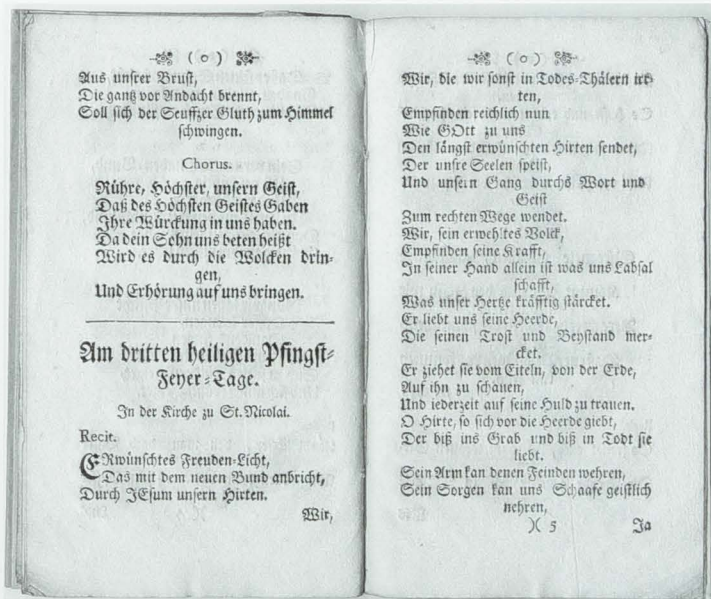 ( o )
Aus unsrer Brust,
Die gantz vor Andacht brennt,
Soll sich der Seuffzer Gluth zum Himmel
schwingen.
Chorus.
Rühre, Höchster, unsern Geist,
Daß des Höchsten Geistes Gaben
Ihre Würckung in uns haben.
Da dein Sohn uns beten heißt
Wird es durch die Wolcken drin-
gen,
Und Erhörung auf uns bringen.
Am dritten heiligen Pfingst-
Feyer-Tage.
In der Kirche zu St. Nicolai.
Recit.
ERwünschtes Freuden-Licht,
Das mit dem neuen Bund anbricht,
Durch JEsum unsern Hirten.
Wir,
( o )
Wir, die wir sonst in Todes-Thälern irr-
ten,
Empfinden reichlich nun
Wie GOtt zu uns
Den längst erwünschten Hirten sendet,
Der unsre Seelen speist,
Und unsern Gang durchs Wort und
Geist
Zum rechten Wege wendet.
Wir, sein erwehltes Volck,
Empfinden seine Krafft,
In seiner Hand allein ist was uns Labsal
schafft,
Was unser Hertze kräfftig stärcket.
Er liebt uns seine Heerde,
Die seinen Trost und Beystand mer-
cket.
Er ziehet sie vom Eiteln, von der Erde,
Auf ihn zu schauen,
Und iederzeit auf seine Huld zu trauen.
O Hirte, so sich vor die Heerde giebt,
Der biß ins Grab und biß in Todt sie
liebt.
Sein Arm kan denen Feinden wehren,
Sein Sorgen kan uns Schaafe geistlich
nehren,
)( 5
Ja